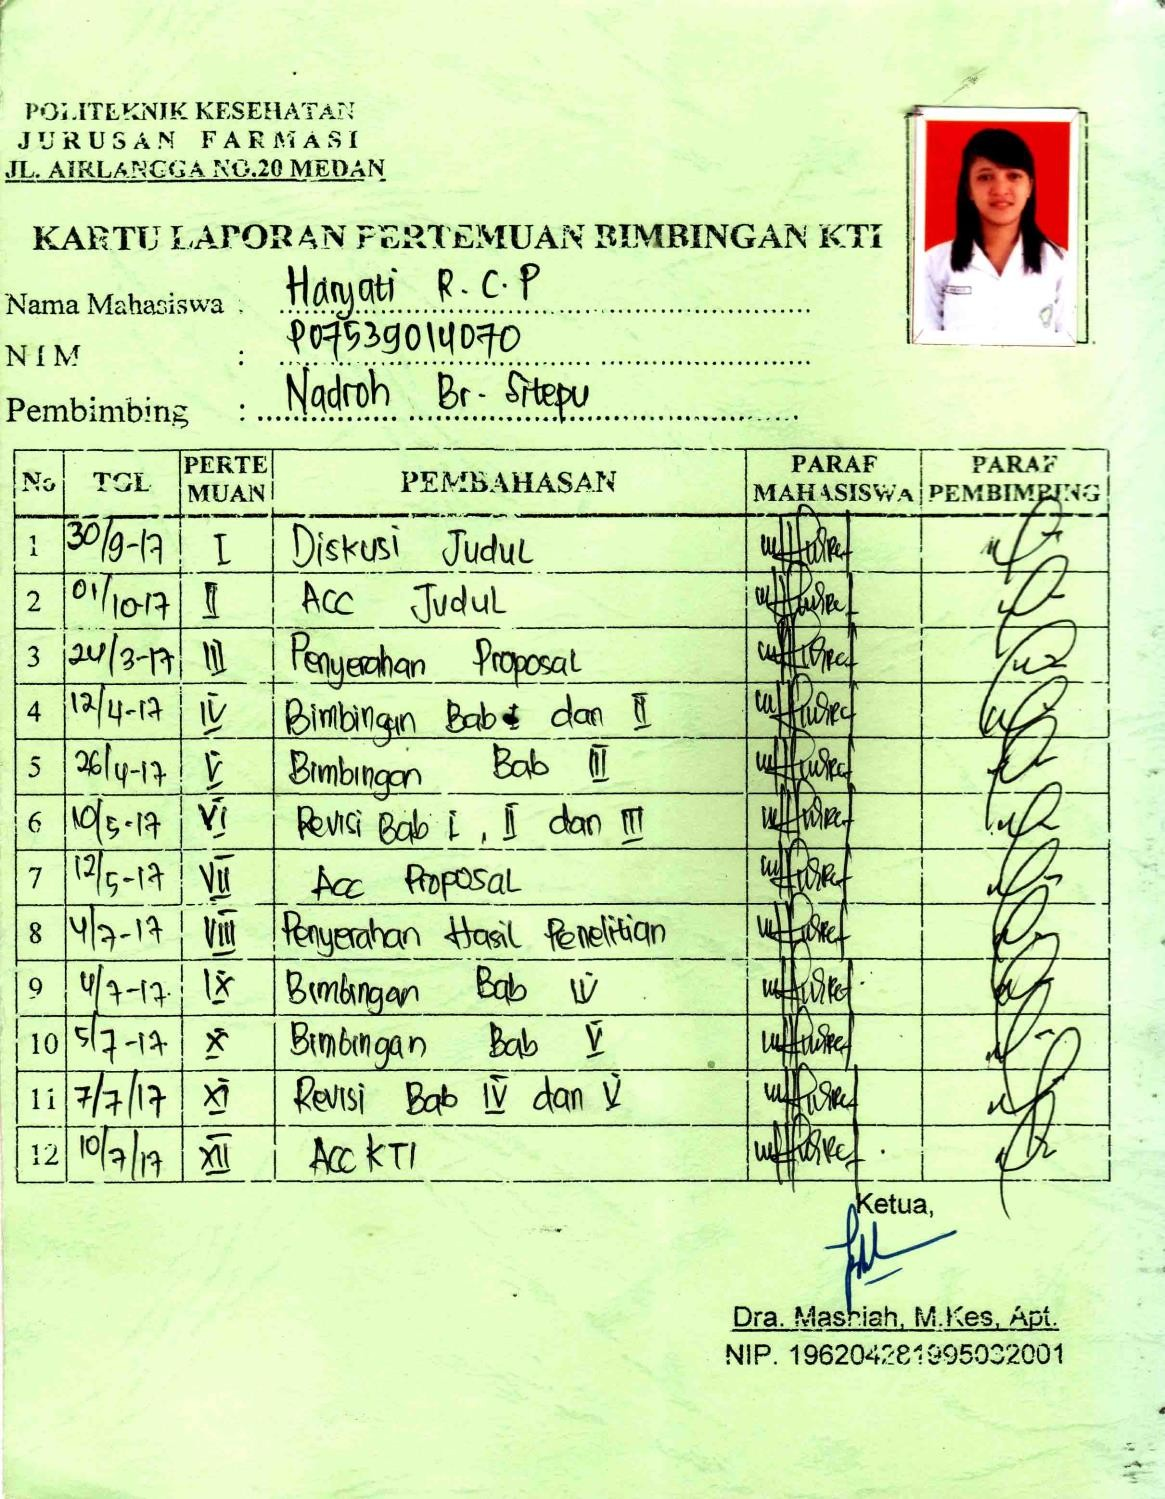 POLITEKNIK KESEHATAN
JURUSAN FARMASI
JL. AIRLANGGA NO.20 MEDAN
KARTU LAPORAN PERTEMUAN BIMBINGAN KTI
Nama Mahasiswa : Haryati R.C.P
NIM : P07539014070
Pembimbing : Nadroh Br. Sitepu
No TGL PERTEMUAN PEMBAHASAN PARAF MAHASISWA PARAF PEMBIMBING
1 30/9-17 I Diskusi Judul
2 01/10-17 II ACC Judul
3 24/3-17 III Penyerahan Proposal
4 12/4-17 IV Bimbingan Bab I dan II
5 26/4-17 V Bimbingan Bab III
6 10/5-17 VI Revisi Bab I, II dan III
7 12/5-17 VII Acc Proposal
8 4/7-17 VIII Penyerahan Hasil Penelitian
9 4/7-17 IX Bimbingan Bab IV
10 5/7-17 X Bimbingan Bab V
11 7/7/17 XI Revisi Bab IV dan V
12 10/7/17 XII Acc KTI
Ketua,
Dra. Masniah, M.Kes, Apt.
NIP. 196204281995032001